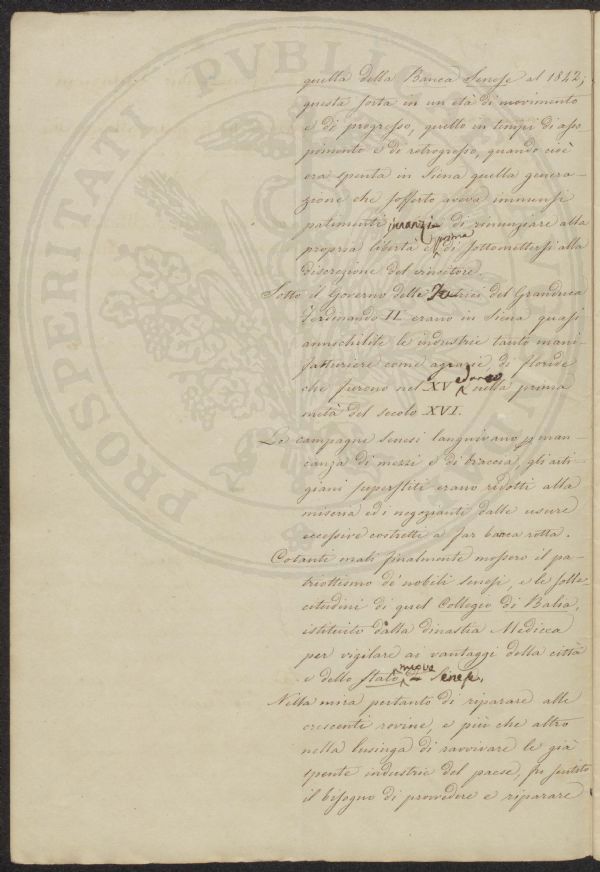 PROSPERITATI PVBLICAE
quella della Banca Senese al 1842;
questa sorta in un età di movimento
e di progresso, quello in tempi di asso
pimento e di retrogresso, quando cioè
era spenta in Siena quella genera-
zione che sofferto aveva immensi
patimenti innanzi di rinunziare alla
prima
propria libertà e di sottomettersi alla
discrezione del vincitore.
Sotto il Governo delle Tutrici del Granduca
Ferdinando II erano in Siena quasi
annichilite le industrie tanto mani-
fatturiere come agrarie, di floride
che furono nel XV nella prima
metà del secolo XVI.
Le campagne senesi languivano p man-
canza di mezzi e di braccia, gli arti-
giani superstiti erano ridotti alla
miseria ed i negozianti dalle usure
eccessive costretti a far banca rotta.
Cotanti mali finalmente mossero il pa-
triottismo de' nobili senesi, e le solle-
citudini di quel Collegio di Balìa,
istituito dalla dinastia Medicea
per vigilare ai vantaggi della città
nuovo
e dello stato di Siena.
Nella mira pertanto di riparare alle
crescenti rovine, e più che altro
nella lusinga di ravvivare le già
spente industrie del paese, fu sentito
il bisogno di provvedere e riparare